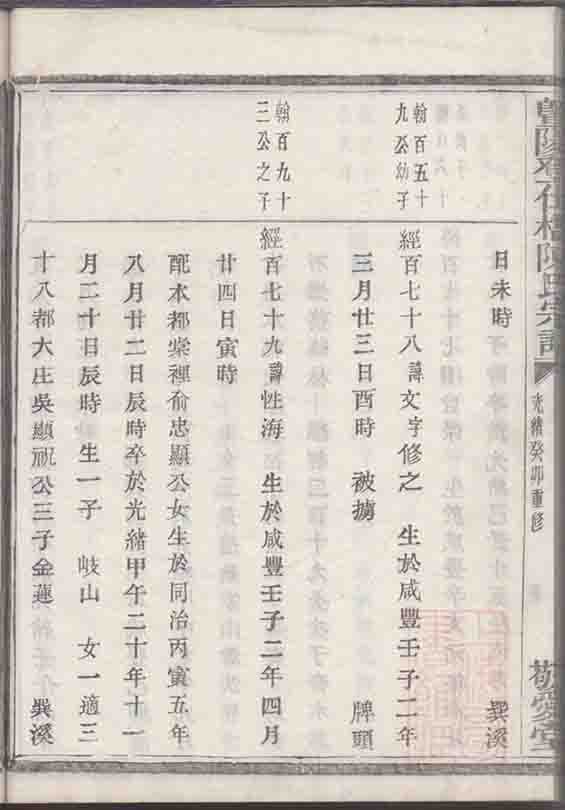 暨陽孝仕橋陳氏宗譜
光緒癸卯重修
敬愛堂
日未時 巽溪
翰百五十
九公幼子
經百七十八諱文字修之 生於咸豐壬子二年
三月廿三日酉時 被擄 牌頭
翰百九十
三公之子
經百七十九諱性海 生於咸豐壬子二年四月
廿四日寅時
配本都棠裡俞忠顯公女生於同治丙寅五年
八月廿二日辰時卒於光緒甲午二十年十一
月二十日辰時 生一子 岐山 女一適三
十八都大庄吳顯祝公三子金蓮 巽溪